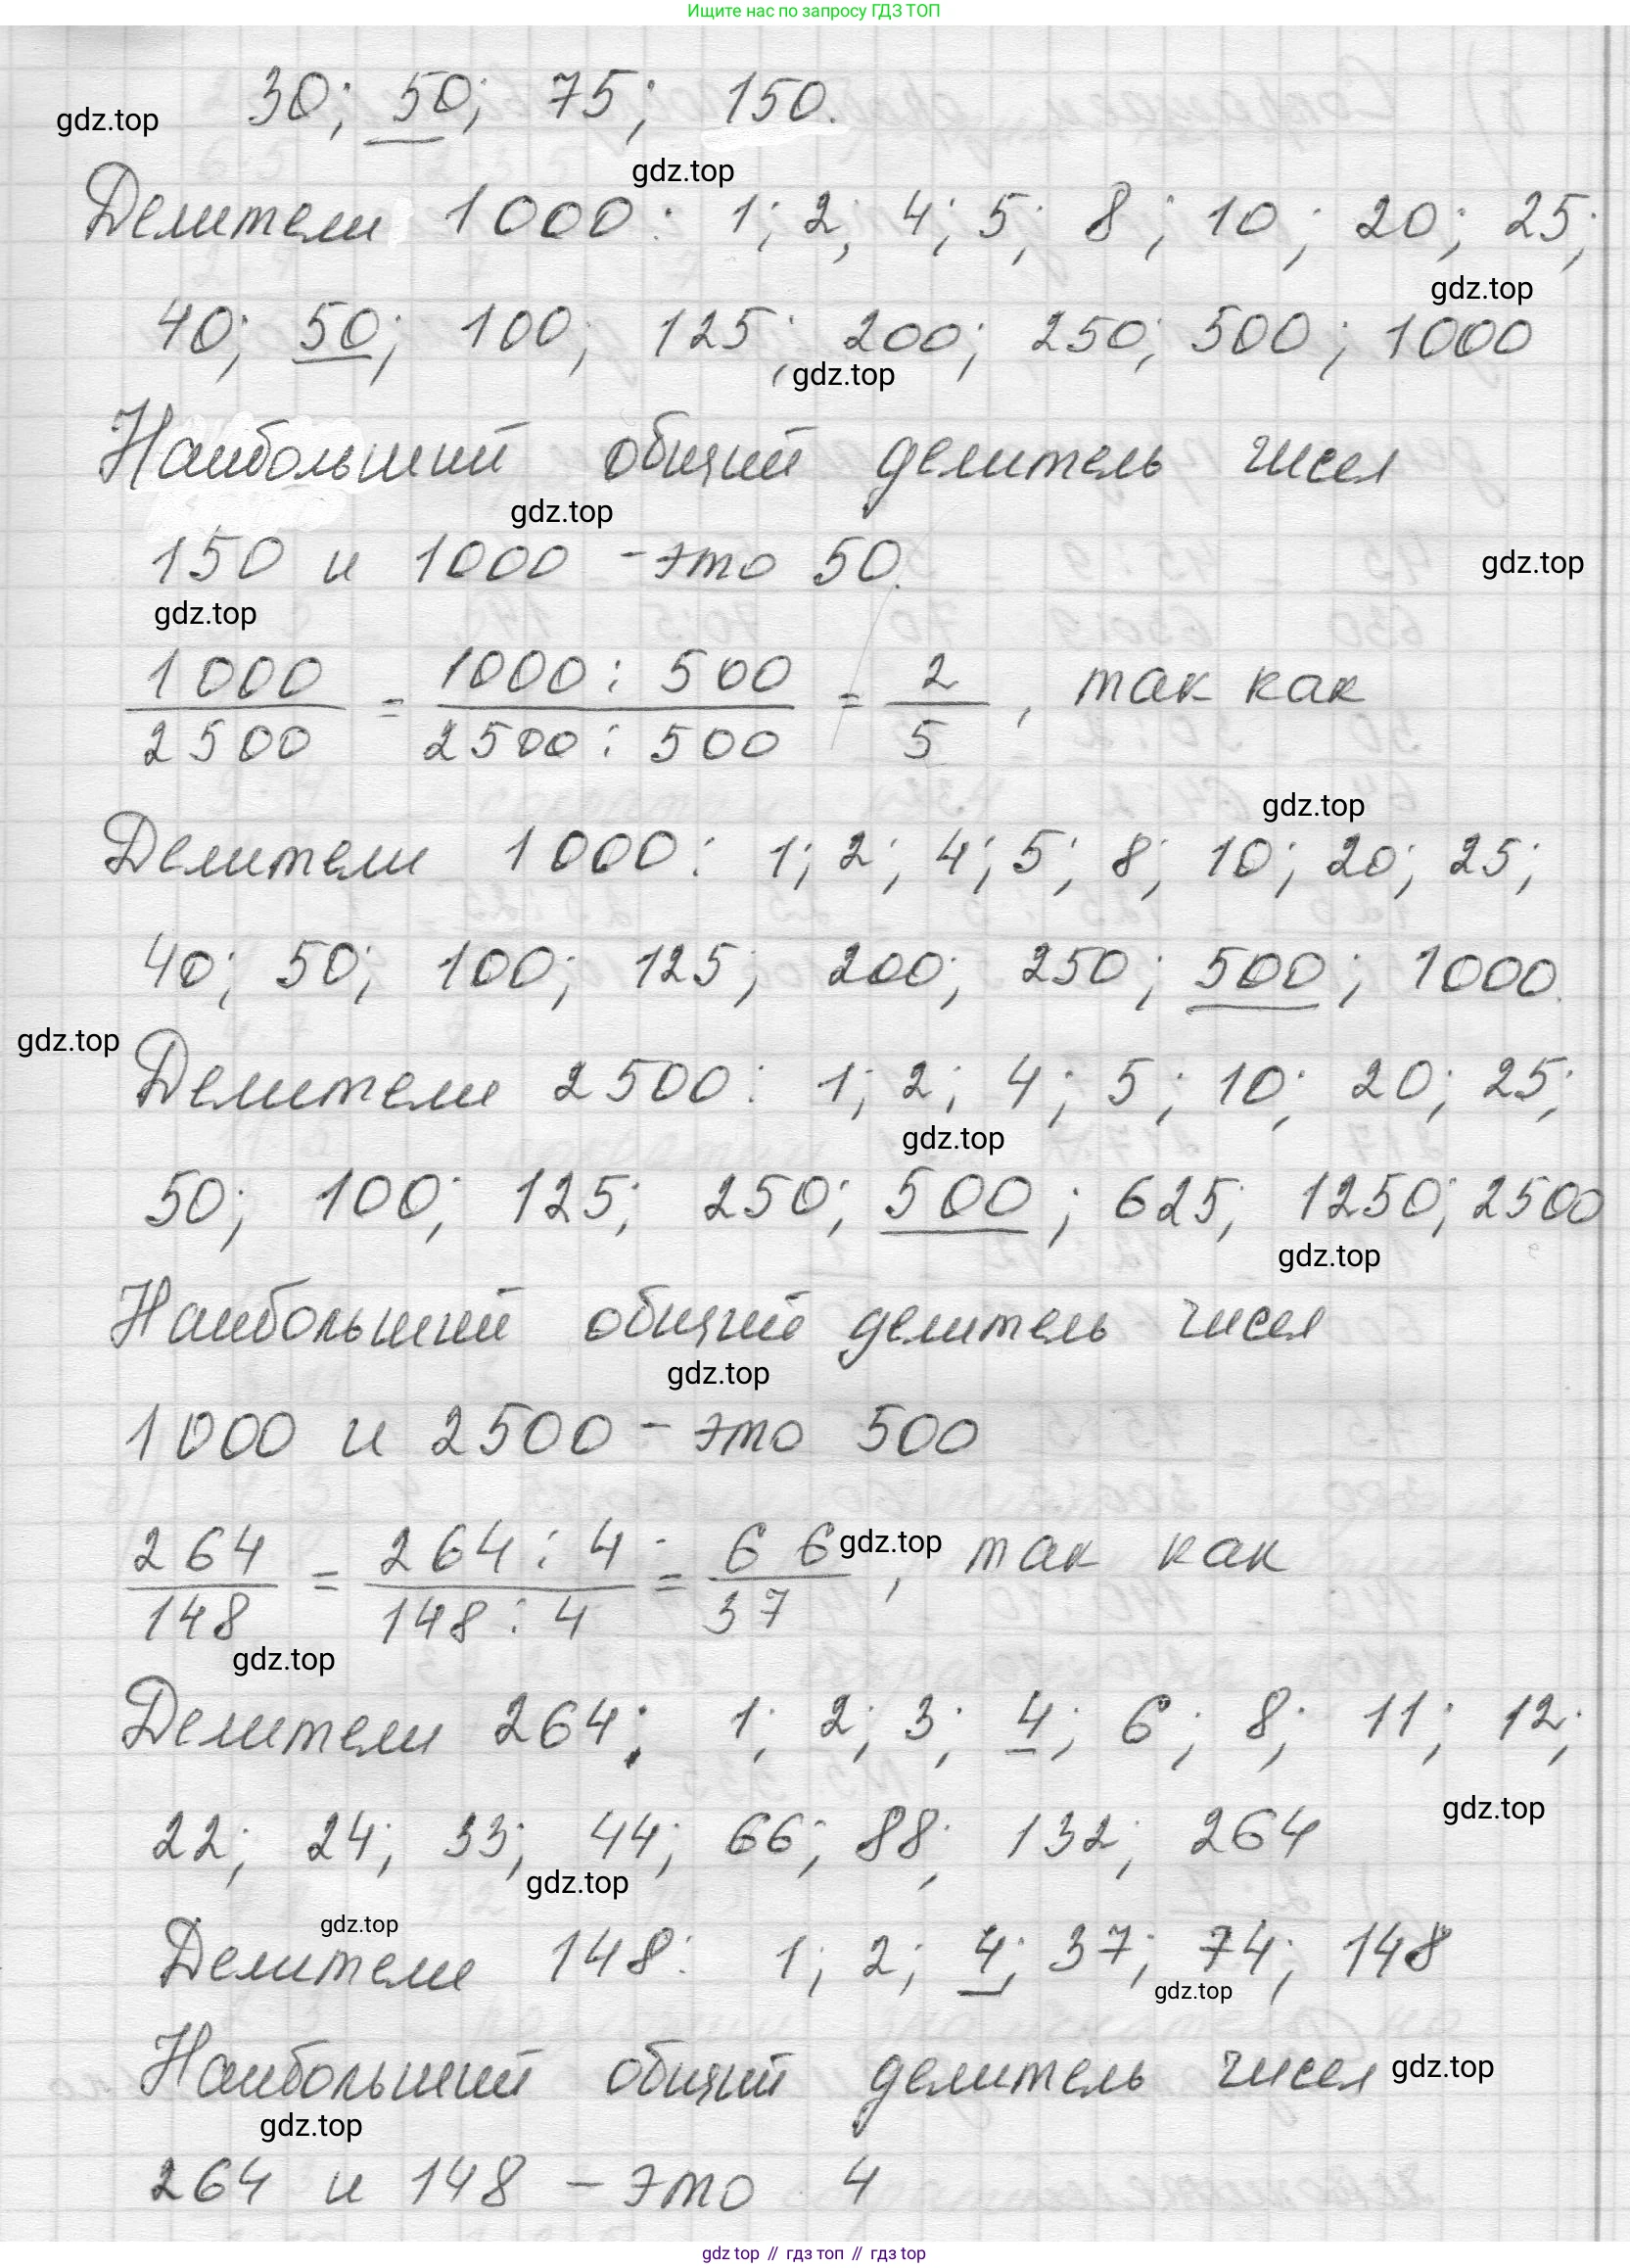 Ищите нас по запросу ГДЗ ТОП
30; 50; 75; 150.
gdz.top
gdz.top
Делители 1000: 1; 2; 4; 5; 8; 10; 20; 25;
gdz.top
40; 50; 100; 125; 200; 250; 500; 1000
gdz.top
Наибольший общий делитель чисел
gdz.top
150 и 1000 - это 50.
gdz.top
gdz.top
1000/2500 = 1000:500/2500:500 = 2/5, так как
gdz.top
Делители 1000: 1; 2; 4; 5; 8; 10; 20; 25;
40; 50; 100; 125; 200; 250; 500; 1000.
gdz.top
Делители 2500: 1; 2; 4; 5; 10; 20; 25;
gdz.top
50; 100; 125; 250; 500; 625; 1250; 2500
gdz.top
Наибольший общий делитель чисел
gdz.top
1000 и 2500 - это 500
264/148 = 264:4/148:4 = 66/37, так как
gdz.top
gdz.top
Делители 264: 1; 2; 3; 4; 6; 8; 11; 12;
gdz.top
22; 24; 33; 44; 66; 88; 132; 264
gdz.top
gdz.top
Делители 148: 1; 2; 4; 37; 74; 148
gdz.top
Наибольший общий делитель чисел
gdz.top
gdz.top
264 и 148 - это 4
gdz top // гдз топ // gdz top